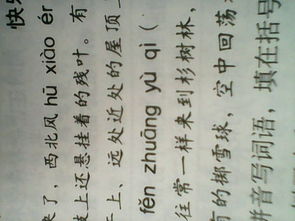 快
了，西北风 hū xiào ér
上还悬挂着的残叶。有
上、远处近处的屋顶上
fěn zhuāng yù qì（
往常一样来到杉树林，
的掷雪球，空中回荡
拼音写词语，填在括号